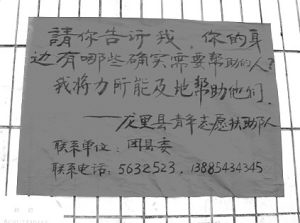 請你告诉我，你的身
边有哪些确实需要帮助的人？
我将力所能及地帮助他们．
——龙里县青年志愿扶助队
联系单位：团县委
联系电话：5632523，13885434345